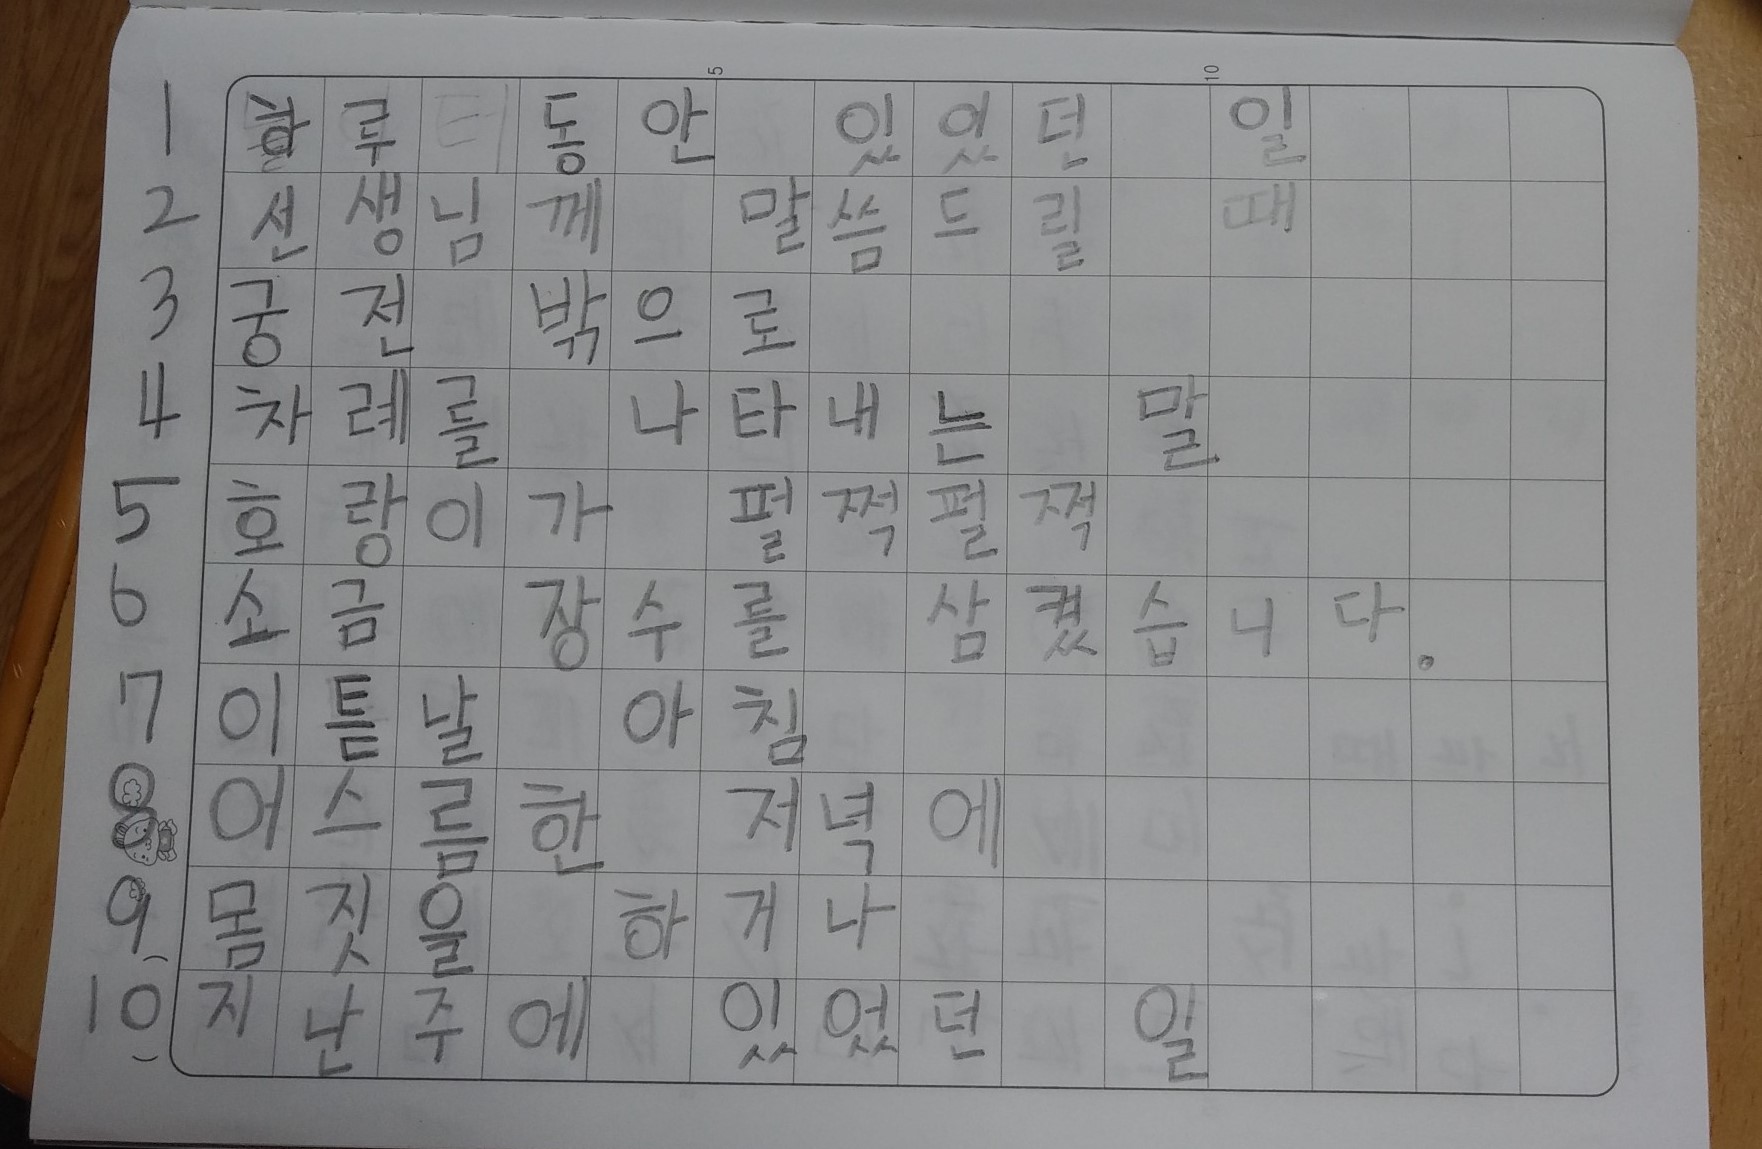 5 10
1 하루 동안 있었던 일
2 선생님께 말씀드릴 때
3 궁전 밖으로
4 차례를 나타내는 말
5 호랑이가 펄쩍펄쩍
6 소금 장수를 삼켰습니다.
7 이튿날 아침
8 어스름한 저녁에
9 몸짓을 하거나
10 지난주에 있었던 일